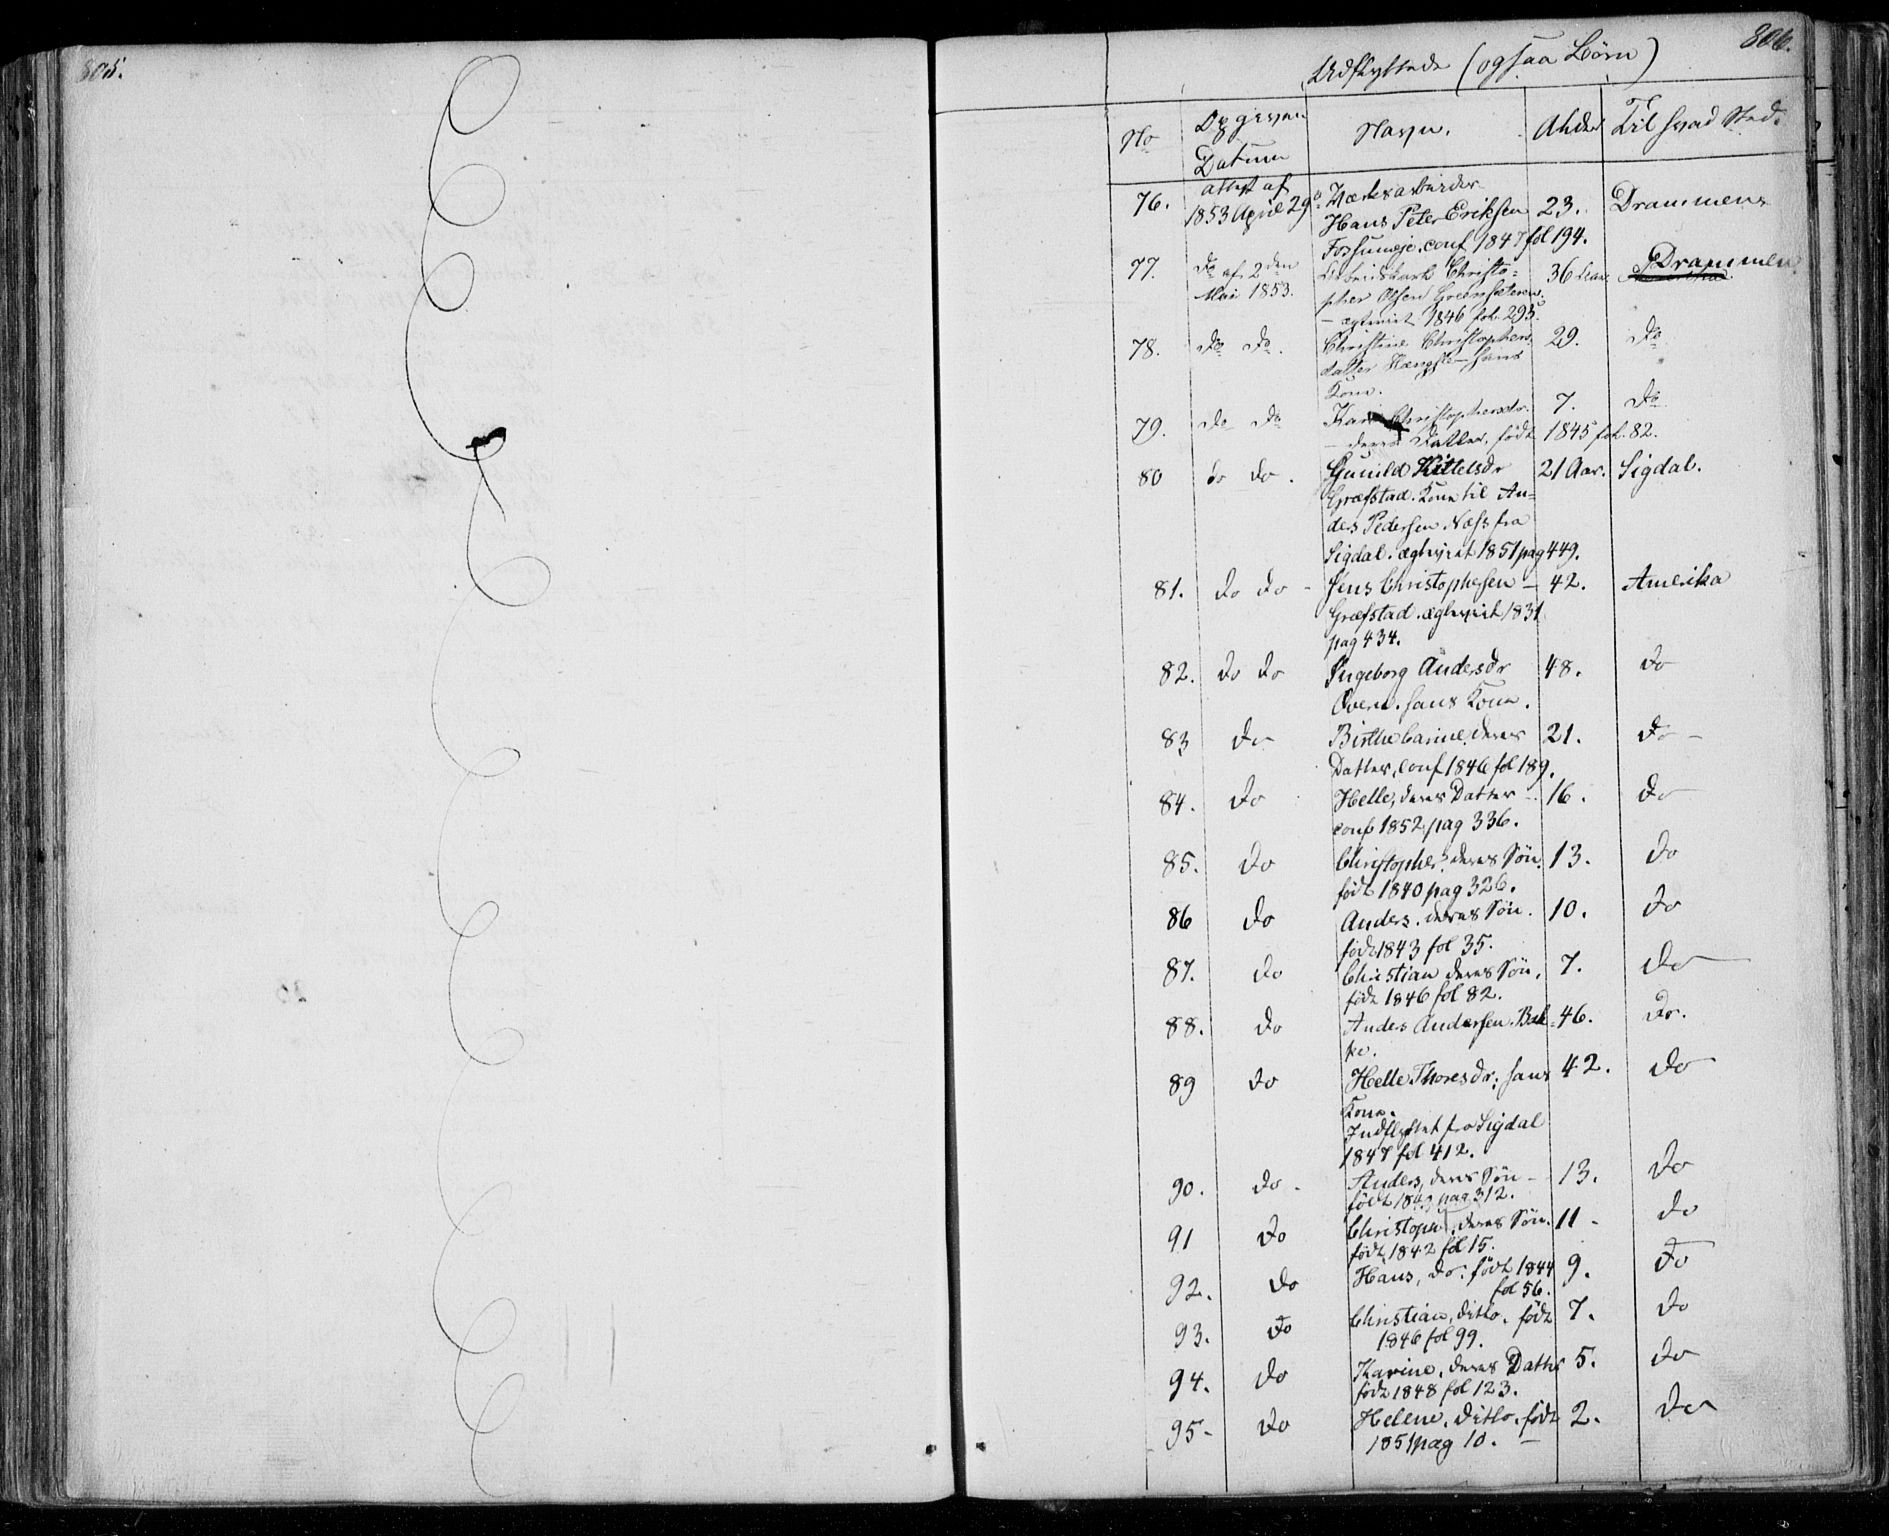 805.
806.
Udflyttede (ogsaa Børn)
No
Opgiven Datum
Navn.
Alder
Til hvad Sted.
76. attest af 1853 April 29de Værksarbeider 23. Drammens
Hans Peter Eriksen
Fossumeje. conf 1847 fol 194.
77. Do af 2den Mai 1853. Christo= 36 Aar Drammen
pher Olsen
ægteviet 1846 fol. 293.
78. Do Do. Christine Christophers 29. Do
datter hans
Kone.
79. Do Do Christophersdr. 7. Do
deres Datter, født 1845 fol. 82.
80 Do Do. Gunild Kittelsdr 21 Aar. Sigdal.
Græfstad. Kone til An=
ders Pedersen Næss fra
Sigdal. ægteviet 1851 pag 449.
81. Do Do - Jens Christophesen - 42. Amerika
Græfstad. ægteviet 1831
pag 434.
82. Do Do Ingeborg Andersdr 48. Do
Overn. hans Kone.
83 Do Birthe Carine, deres 21. Do -
Datter, conf 1846 fol 189.
84. Do Helle, deres Datter - 16. Do
conf 1852 pag 336.
85. Do Christopher, deres Søn. 13. Do
født 1840 pag 326.
86 Do Anders. deres Søn. 10. Do
født 1843 fol 35.
87. Do Christian deres Søn. 7. Do
født 1846 fol 82.
88. Do Anders Andersen Bak= 46. Do.
ke.
89 Do Helle Thoresdr, hans 42. Do
Kone.
Indflyttet fra Sigdal
1847 fol 412.
90. Do - Anders, deres Søn - 13. Do
født pag 312.
91 Do deres Søn. 11 - Do
født 1842 fol 15.
92. Do Hans, do. født 1844 9. Do
fol 56.
93. Do Christian, ditto. født 7. Do
1846 fol 99.
94. Do Karine, deres Datter 5. Do
født 1848 fol 123.
95- Do Helene, ditto. født 2. Do
1851 pag 10. -